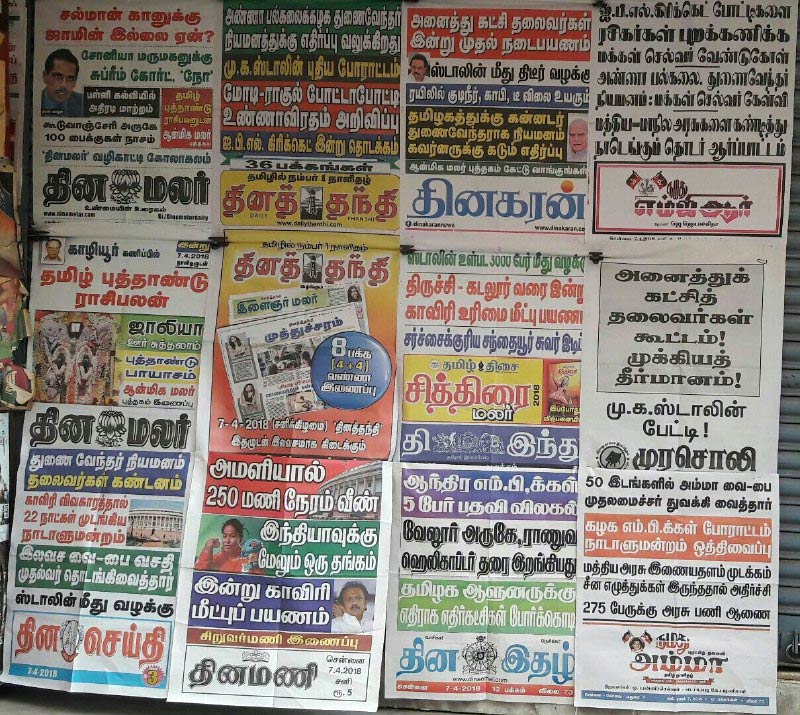 சல்மான் கானுக்கு
ஜாமின் இல்லை ஏன்?
சோனியா மருமகனுக்கு
சுப்ரீம் கோர்ட், 'நோ'
பள்ளி கல்வியில்
அதிரடி மாற்றம்
தமிழ்
புத்தாண்டு
ராசிபலனுடன்
ஆன்மிக மலர்
கூடுவாஞ்சேரி அருகே
100 பைக்குகள் நாசம்
'தினமலர்' வழிகாட்டி கோலாகலம்
தின மலர்
உண்மையின் உரைகல்
www.dinamalar.com
அண்ணா பல்கலைக்கழக துணைவேந்தர்
நியமனத்துக்கு எதிர்ப்பு வலுக்கிறது
மு.க.ஸ்டாலின் புதிய போராட்டம்
மோடி-ராகுல் போட்டாபோட்டி
உண்ணாவிரதம் அறிவிப்பு
ஐ.பி.எல். கிரிக்கெட் இன்று தொடக்கம்
36 பக்கங்கள்
தமிழில் நம்பர் 1 நாளிதழ்
தினத் தந்தி
DAILY THANTHI
www.dailythanthi.com
அனைத்து கட்சி தலைவர்கள்
இன்று முதல் நடைபயணம்
ஸ்டாலின் மீது திடீர் வழக்கு
ரயிலில் குடிநீர், காபி, டீ விலை உயரும்
தமிழகத்துக்கு கன்னடர்
துணைவேந்தராக நியமனம்
கவர்னருக்கு கடும் எதிர்ப்பு
ஆன்மிக மலர் புத்தகம் கேட்டு வாங்குங்கள்
தினகரன்
dinakarannews
www.dinakaran.com
ஐ.பி.எல்.கிரிக்கெட் போட்டிகளை
ரசிகர்கள் புறக்கணிக்க
மக்கள் செல்வர் வேண்டுகோள்
அண்ணா பல்கலை. துணைவேந்தர்
நியமனம்: மக்கள் செல்வர் கேள்வி
மத்திய-மாநில அரசுகளை கண்டித்து
நாடெங்கும் தொடர் ஆர்ப்பாட்டம்
நமது
எம்ஜிஆர்
காழியூர் கணிப்பில்
இன்று
7.4.2018
தமிழ் புத்தாண்டு
ராசிபலன்
ஜாலியா
ஊர் சுத்தலாம்
புத்தாண்டு
பாயாசம்
ஆன்மிக மலர்
புத்தகம் இணைப்பு
தின மலர்
தமிழில் நம்பர் 1 நாளிதழ்
தினத் தந்தி
இளைஞர் மலர்
முத்துச்சரம்
8 பக்க
(4+4)
வண்ண
இணைப்பு
7-4-2018 (சனிக்கிழமை) 'தினத்தந்தி'
இதழுடன் இலவசமாக கிடைக்கும்
ஸ்டாலின் உள்பட 3000 பேர் மீது வழக்கு
திருச்சி - கடலூர் வரை இன்று
காவிரி உரிமை மீட்பு பயணம்
சர்ச்சைக்குரிய சந்தையூர் சுவர் இடிப்பு
தமிழ் திசை
சித்திரை
மலர்
2018
இப்போது
விற்பனையில்
இந்து
அனைத்துக்
கட்சித்
தலைவர்கள்
கூட்டம்!
முக்கியத்
தீர்மானம்!
மு.க.ஸ்டாலின்
பேட்டி!
முரசொலி
துணை வேந்தர் நியமனம்
தலைவர்கள் கண்டனம்
காவிரி விவகாரத்தால்
22 நாட்கள் முடங்கிய
நாடாளுமன்றம்
இலவச வை-பை வசதி
முதல்வர் தொடங்கிவைத்தார்
ஸ்டாலின் மீது வழக்கு
தின செய்தி
7-4-2018
அமளியால்
250 மணி நேரம் வீண்
இந்தியாவுக்கு
மேலும் ஒரு தங்கம்
இன்று காவிரி
மீட்புப் பயணம்
சிறுவர்மணி இணைப்பு
தினமணி
சென்னை
7.4.2018
சனி
ரூ. 5
ஆந்திர எம்.பி.க்கள்
5 பேர் பதவி விலகல்
வேலூர் அருகே, ராணுவ
ஹெலிகாப்டர் தரை இறங்கியது
தமிழக ஆளுனருக்கு
எதிராக எதிர்கட்சிகள் போர்க்கொடி
தின இதழ்
சென்னை 7-4-2018 12 பக்கம்
50 இடங்களில் அம்மா வை-பை
முதலமைச்சர் துவக்கி வைத்தார்
கழக எம்.பி.க்கள் போராட்டம்
நாடாளுமன்றம் ஒத்திவைப்பு
மத்திய அரசு இணையதளம் முடக்கம்
சீன எழுத்துக்கள் இருந்ததால் அதிர்ச்சி
275 பேருக்கு அரசு பணி ஆணை
நமது
அம்மா